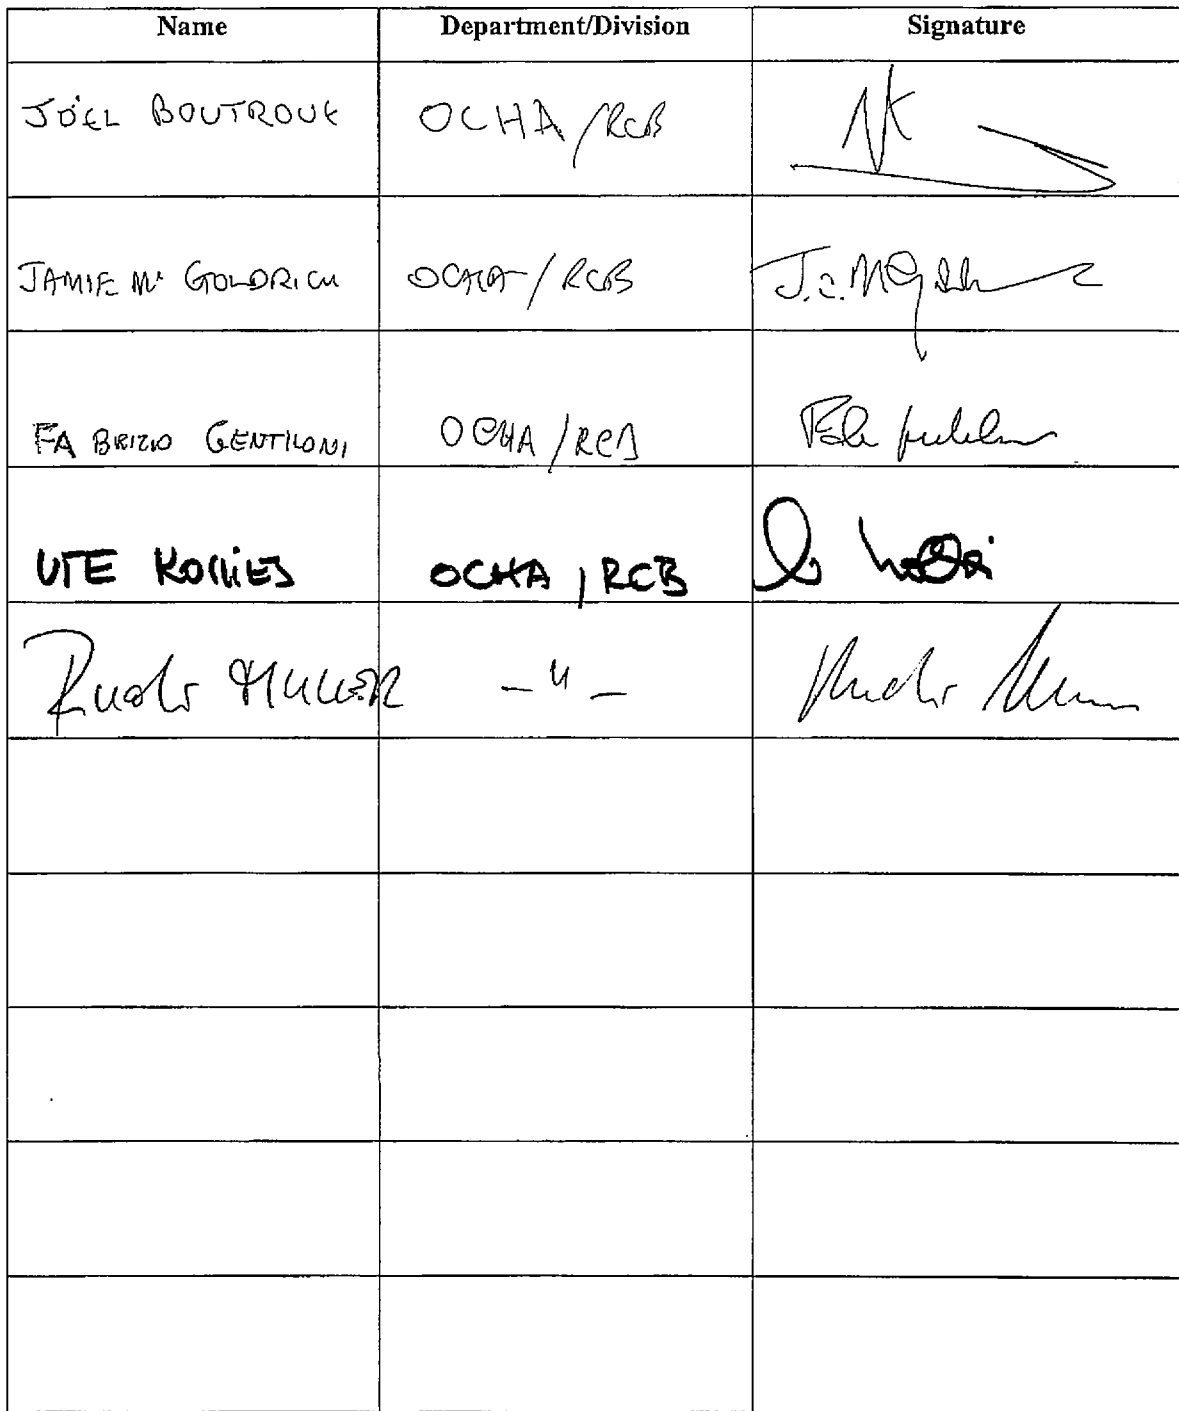 Name Department/Division Signature
JOËL BOUTROUE OCHA/RCB
JAMIE Mc GOLDRICK OCHA/RCB
FABRIZIO GENTILONI OCHA/RCB
UTE KOLLIES OCHA, RCB
Rudolf MULLER - " -